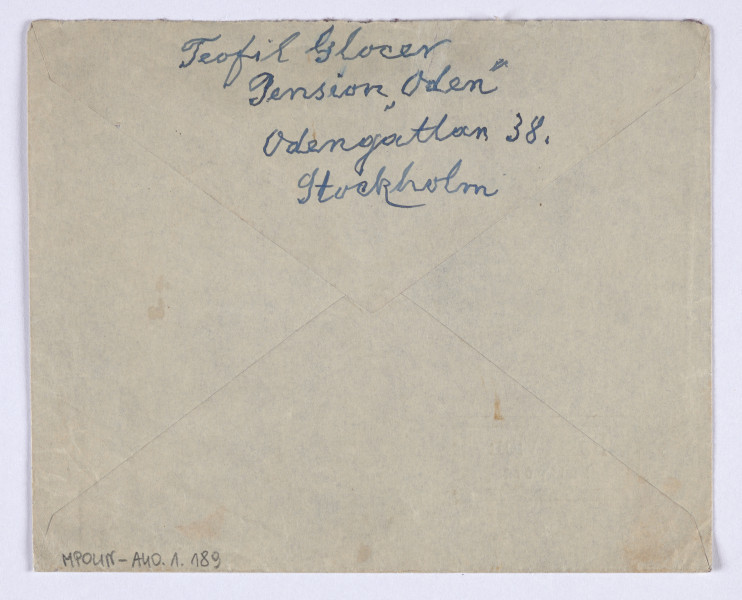 Teofil Glocer
Pension „Oden”
Odengatlan 38.
Stockholm
MPOLIN-A40.1.189